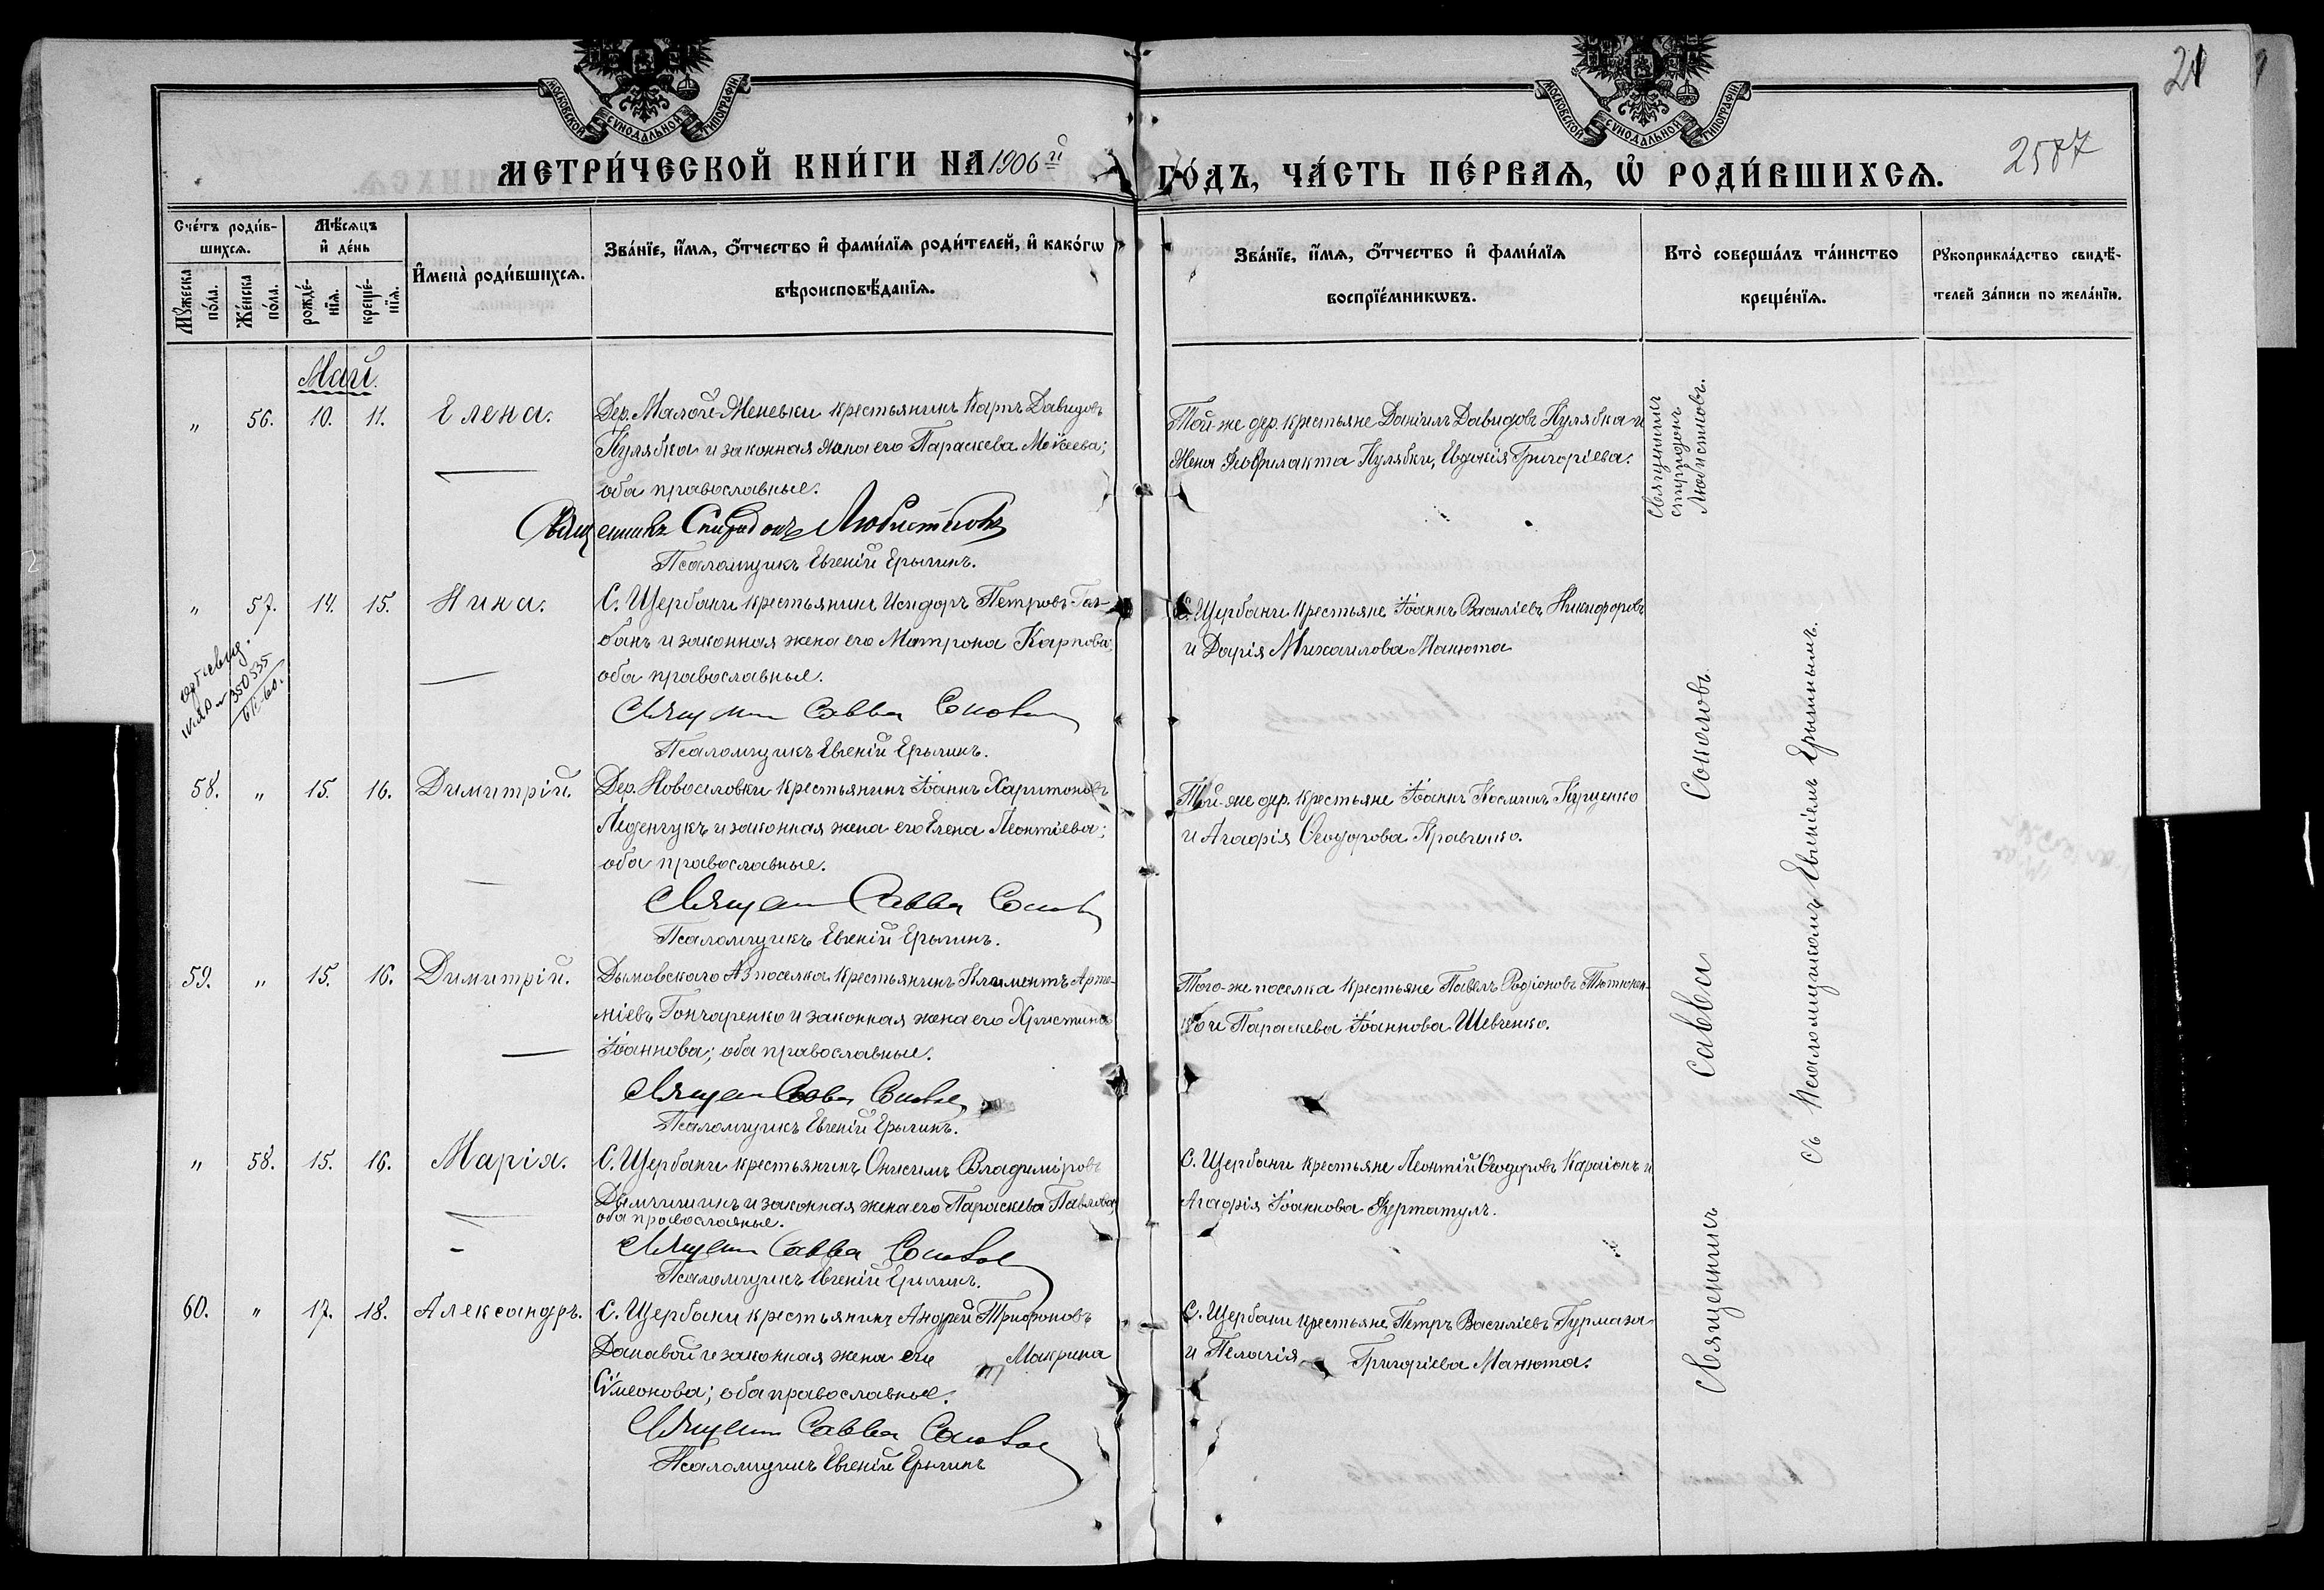 МОСКОВСКОЙ СУНОДАЛЬНОЙ ТИПОГРАФІИ
МОСКОВСКОЙ СУНОДАЛЬНОЙ ТИПОГРАФІИ
21
2587
МЕТРИ́ЧЕСКОЙ КНИ́ГИ НА 1906й ГО́ДЪ, ЧА́СТЬ ПЕ́РВАѦ, Ѡ҆ РОДИ́ВШИХСѦ.
Сче́тъ роди́в-
шихсѧ.
Мꙋ́жеска по́ла.
Же́нска по́ла.
Мѣ́сѧцъ
и҆ де́нь
рожде́-
нїѧ.
креще́-
нїѧ.
И҆мена̀ роди́вшихсѧ.
Зва́нїе, и҆́мѧ, ѻ҆́тчество и҆ фами́лїѧ роди́телей, и҆ како́гѡ
вѣроисповѣ́данїѧ.
Зва́нїе, и҆́мѧ, ѻ҆́тчество и҆ фами́лїѧ
воспрїе́мникѡвъ.
Кто̀ соверша́лъ та́инство
креще́нїѧ.
Рꙋкоприкла́дство свидѣ́-
телей за́писи по жела́нїю.
Май.
" 56. 10. 11. Елена.
Дер. Малой-Женевки крестьянинъ Карпъ Давидовъ
Кулябка и законная жена его Параскева Моѵсеева;
оба православные.
Священникъ Спиридонъ Любистковъ
Псаломщикъ Евгеній Ерылинъ.
Той-же дер. крестьяне Даніилъ Давидовъ Кулябка и
жена Ѳеофилакта Кулябки, Евдокія Григоріева.
Священникъ
Спиридонъ
Любистковъ.
" 57. 14. 15. Нина.
С. Щербани крестьянинъ Исидоръ Петровъ
банъ и законная жена его Матрона Карпова;
оба православные.
Савва
Псаломщикъ Евгеній Ерылинъ.
С. Щербани крестьяне Іоаннъ Василіевъ Никифоровъ
и Дарія Михаилова Манюта
350535
58. " 15. 16. Димитрій.
Дер. Новоселовки крестьянинъ Іоаннъ Харитоновъ
Леденчукъ и законная жена его Елена Леонтіева;
оба православные.
Савва
Псаломщикъ Евгеній Ерылинъ.
Той-же дер. крестьяне Іоаннъ Косминъ Куценко
и Агафія Ѳеодорова Кравченко.
59. " 15. 16. Димитрій.
Дымовскаго поселка крестьянинъ Климентъ Арте-
міевъ Гончаренко и законная жена его Христина
Іоаннова; оба православные.
Савва
Псаломщикъ Евгеній Ерылинъ.
Того-же поселка крестьяне Павелъ Родіоновъ Тютюнни-
къ и Параскева Іоаннова Шевченко.
" 58. 15. 16. Марія.
С. Щербани крестьянинъ Онисимъ Владиміровъ
Дымчишинъ и законная жена его Параскева Павлова;
оба православные.
Савва
Псаломщикъ Евгеній Ерылинъ.
С. Щербани крестьяне Леонтій Ѳеодоровъ Караіонъ и
Агафія Іоаннова Куртатулъ.
60. " 17. 18. Александръ.
С. Щербани крестьянинъ Андрей Трифоновъ
Данавой и законная жена его Макрина
Сѵмеонова; оба православные.
Савва
Псаломщикъ Евгеній Ерылинъ
С. Щербани крестьяне Петръ Василіевъ Гурмаза
и Пелагія Григоріева Манюта.
Священникъ Савва Соколовъ
съ Псаломщикомъ Евгеніемъ Ерылинымъ.